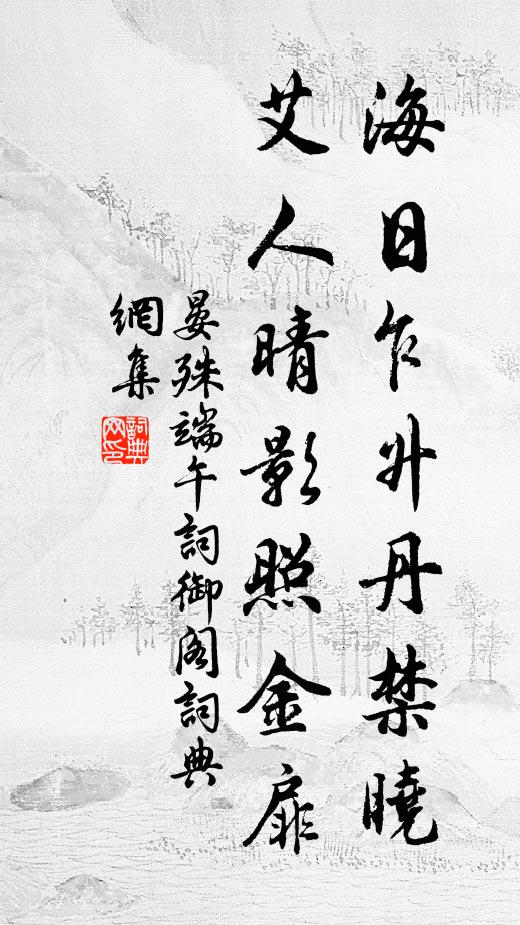 海日乍升丹禁曉
艾人晴影照金扉
晏殊端午詞御閣詞典
網集
詞典
网印